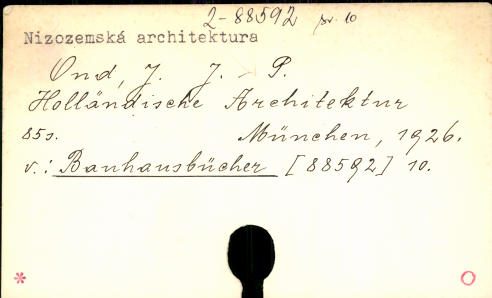 2-88592 sv. 10
Nizozemská architektura
Oud, J. J. P.
Holländische Architektur
85s. München, 1926.
v.: Bauhausbücher [88592] 10.
* O